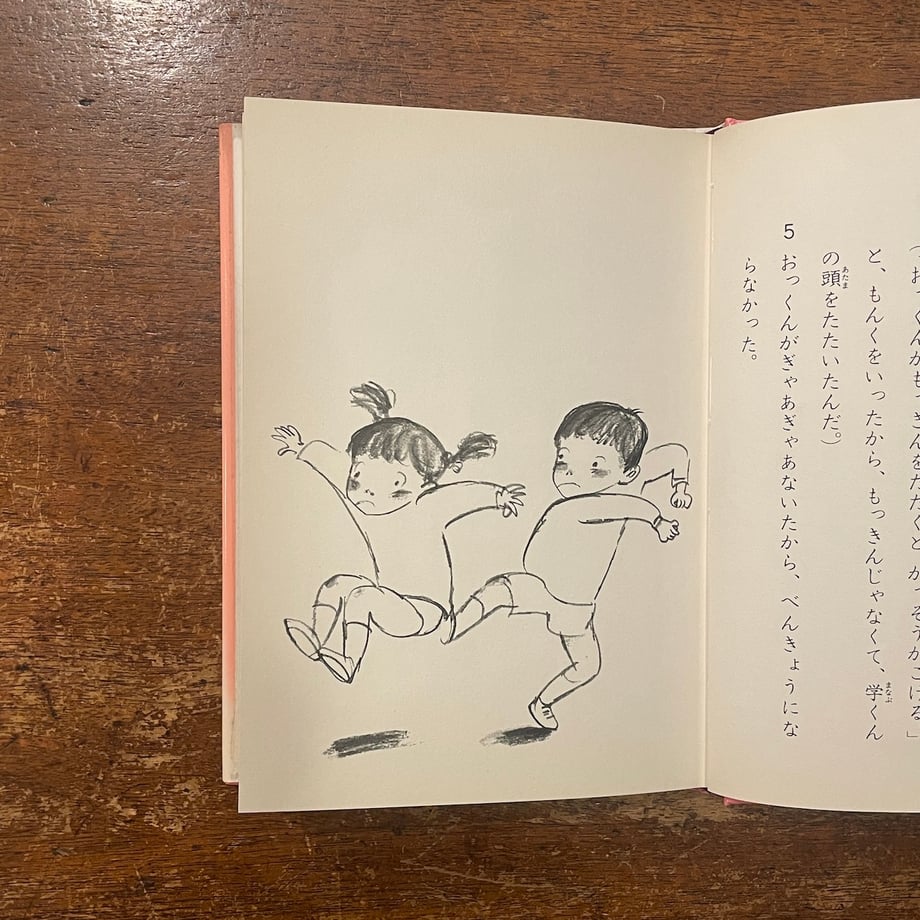 おっくんがもっきんをたたくと、がっそうがこける」
と、もんくをいったから、もっきんじゃなくて、学（まなぶ）くん
の頭（あたま）をたたいたんだ。）
5 おっくんがぎゃあぎゃあないたから、べんきょうにな
らなかった。